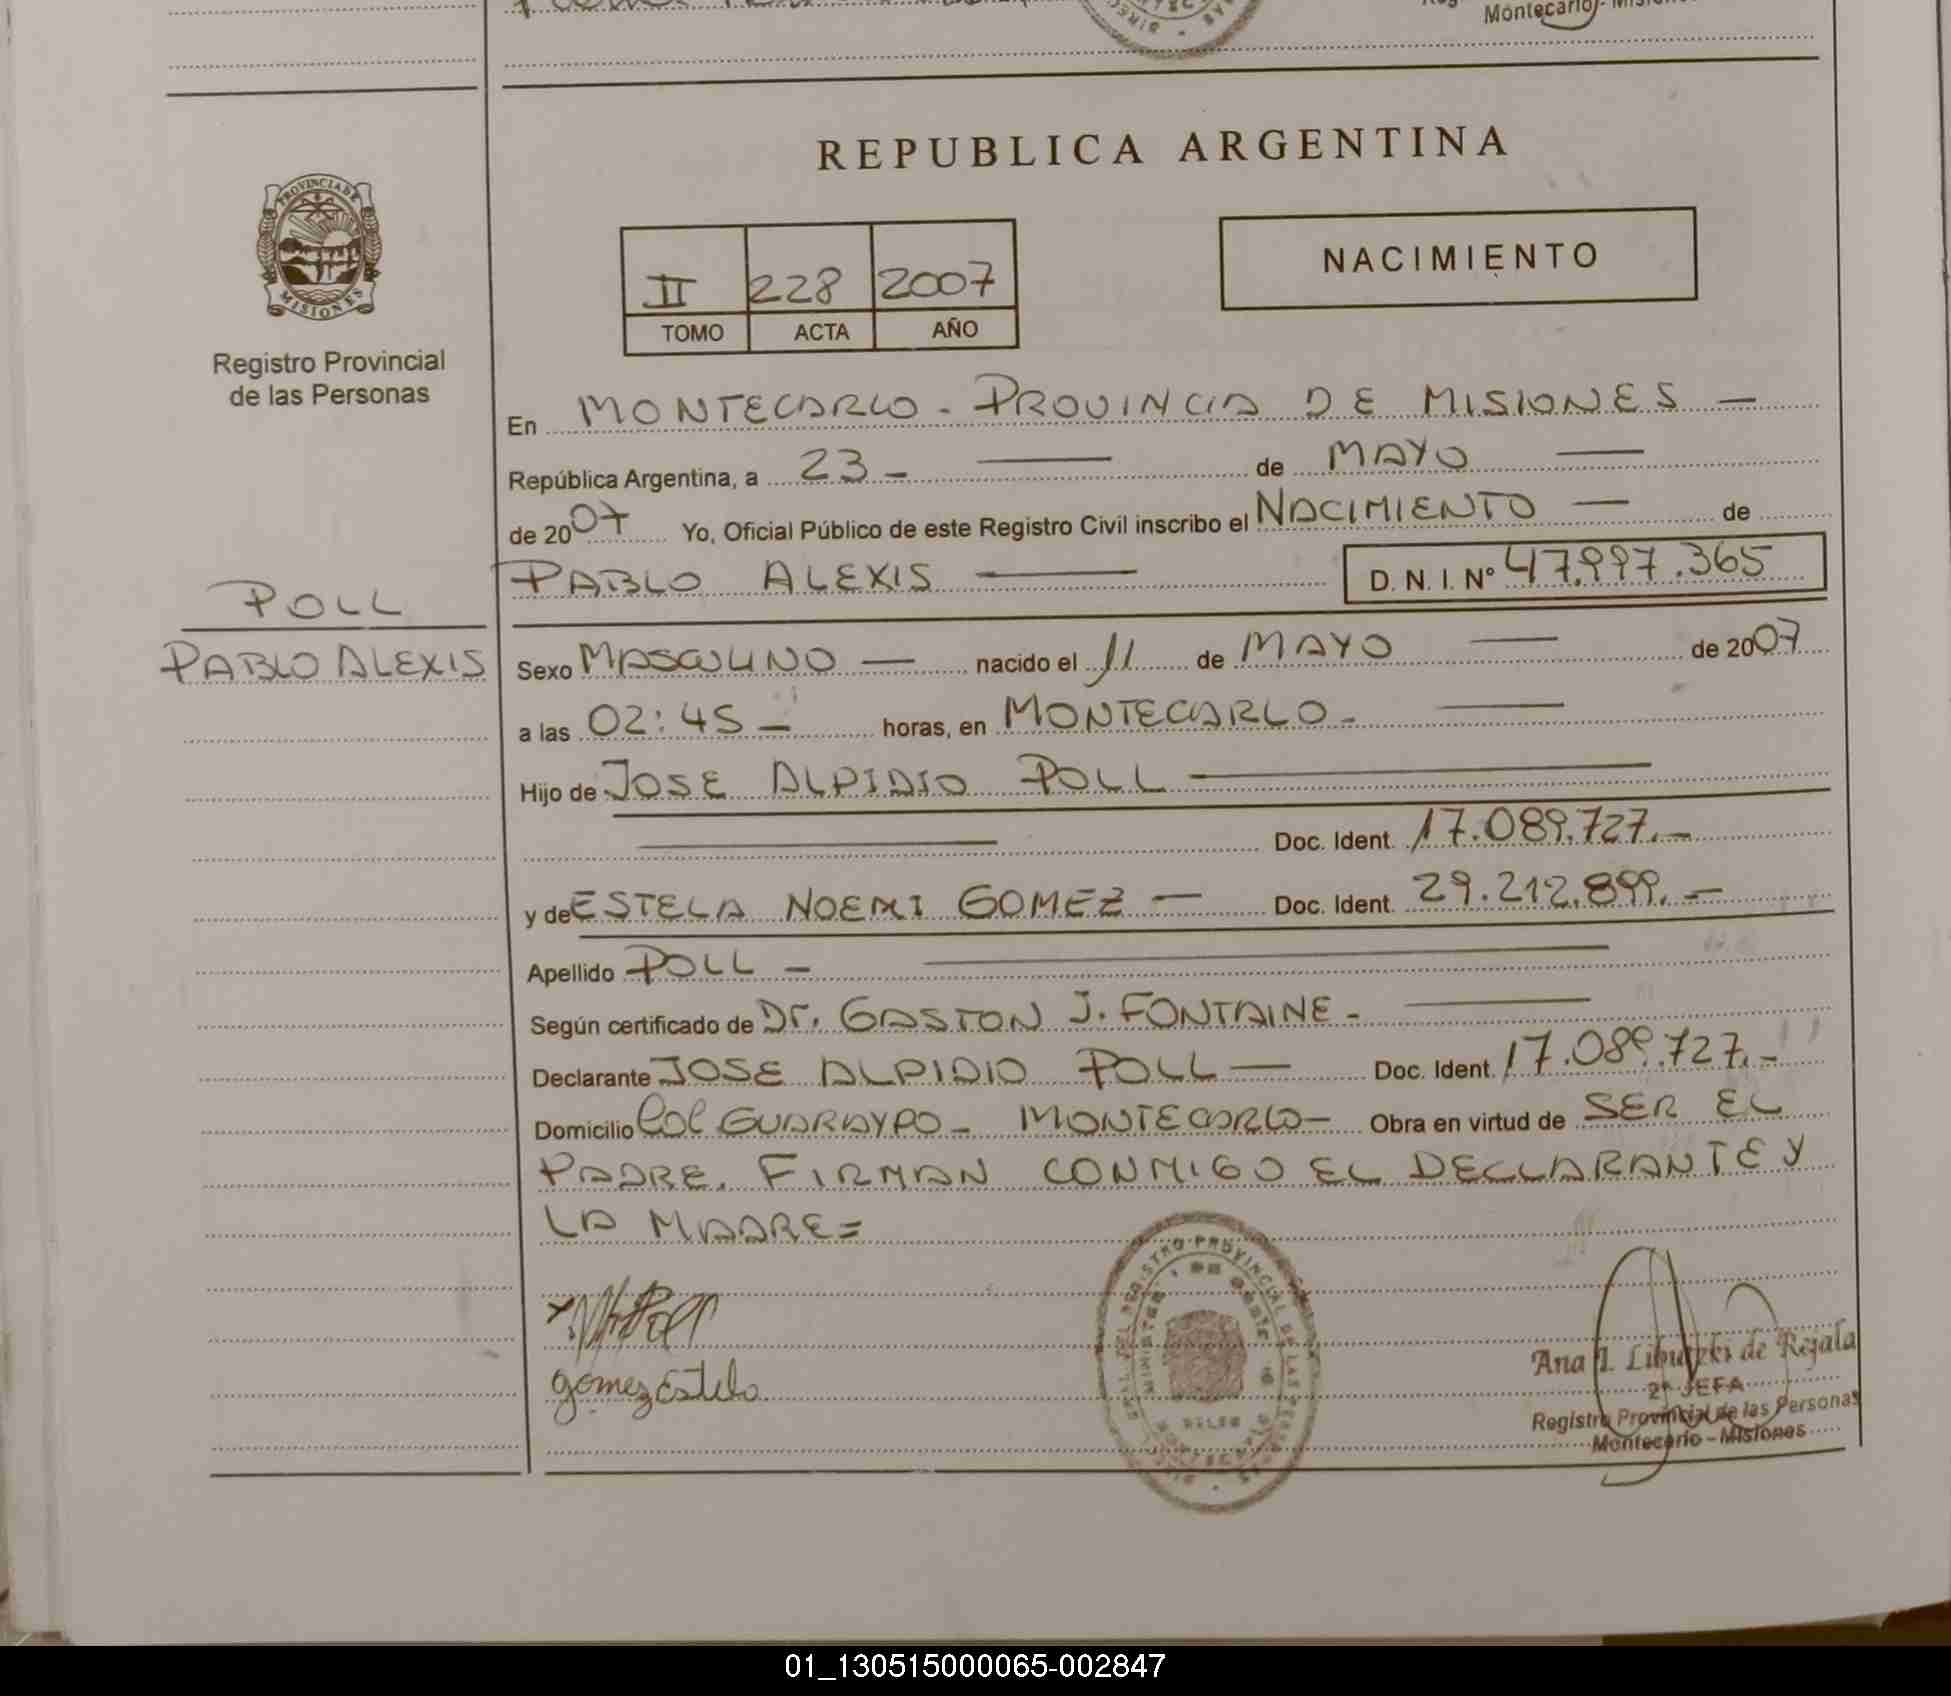 Montecarlo - Misiones
REPUBLICA ARGENTINA
PROVINCIA DE
MISIONES
Registro Provincial
de las Personas
NACIMIENTO
II 228 2007
TOMO ACTA AÑO
En MONTECARLO - PROVINCIA DE MISIONES —
República Argentina, a 23 - — de MAYO —
de 2007 Yo, Oficial Público de este Registro Civil inscribo el NACIMIENTO — de
PABLO ALEXIS — D. N. I. Nº 47.997.365
POLL
PABLO ALEXIS
Sexo MASCULINO — nacido el 11 de MAYO — de 2007
a las 02:45 - horas, en MONTECARLO - —
Hijo de JOSE ALPIDIO POLL —
— Doc. Ident. 17.089.727. -
y de ESTELA NOEMI GOMEZ — Doc. Ident. 29.212.899. -
Apellido POLL - —
Según certificado de Dr. GASTON J. FONTAINE - —
Declarante JOSE ALPIDIO POLL — Doc. Ident. 17.089.727. -
Domicilio Col GUARAYPO - MONTECARLO - Obra en virtud de SER EL
PADRE. FIRMAN CONMIGO EL DECLARANTE Y
LA MADRE=
gomez Estela
REGISTRO PROVINCIAL DE LAS PERSONAS
Ana I. de Rejala
2ª JEFA
Registro Provincial de las Personas
Montecarlo - Misiones
01_130515000065-002847